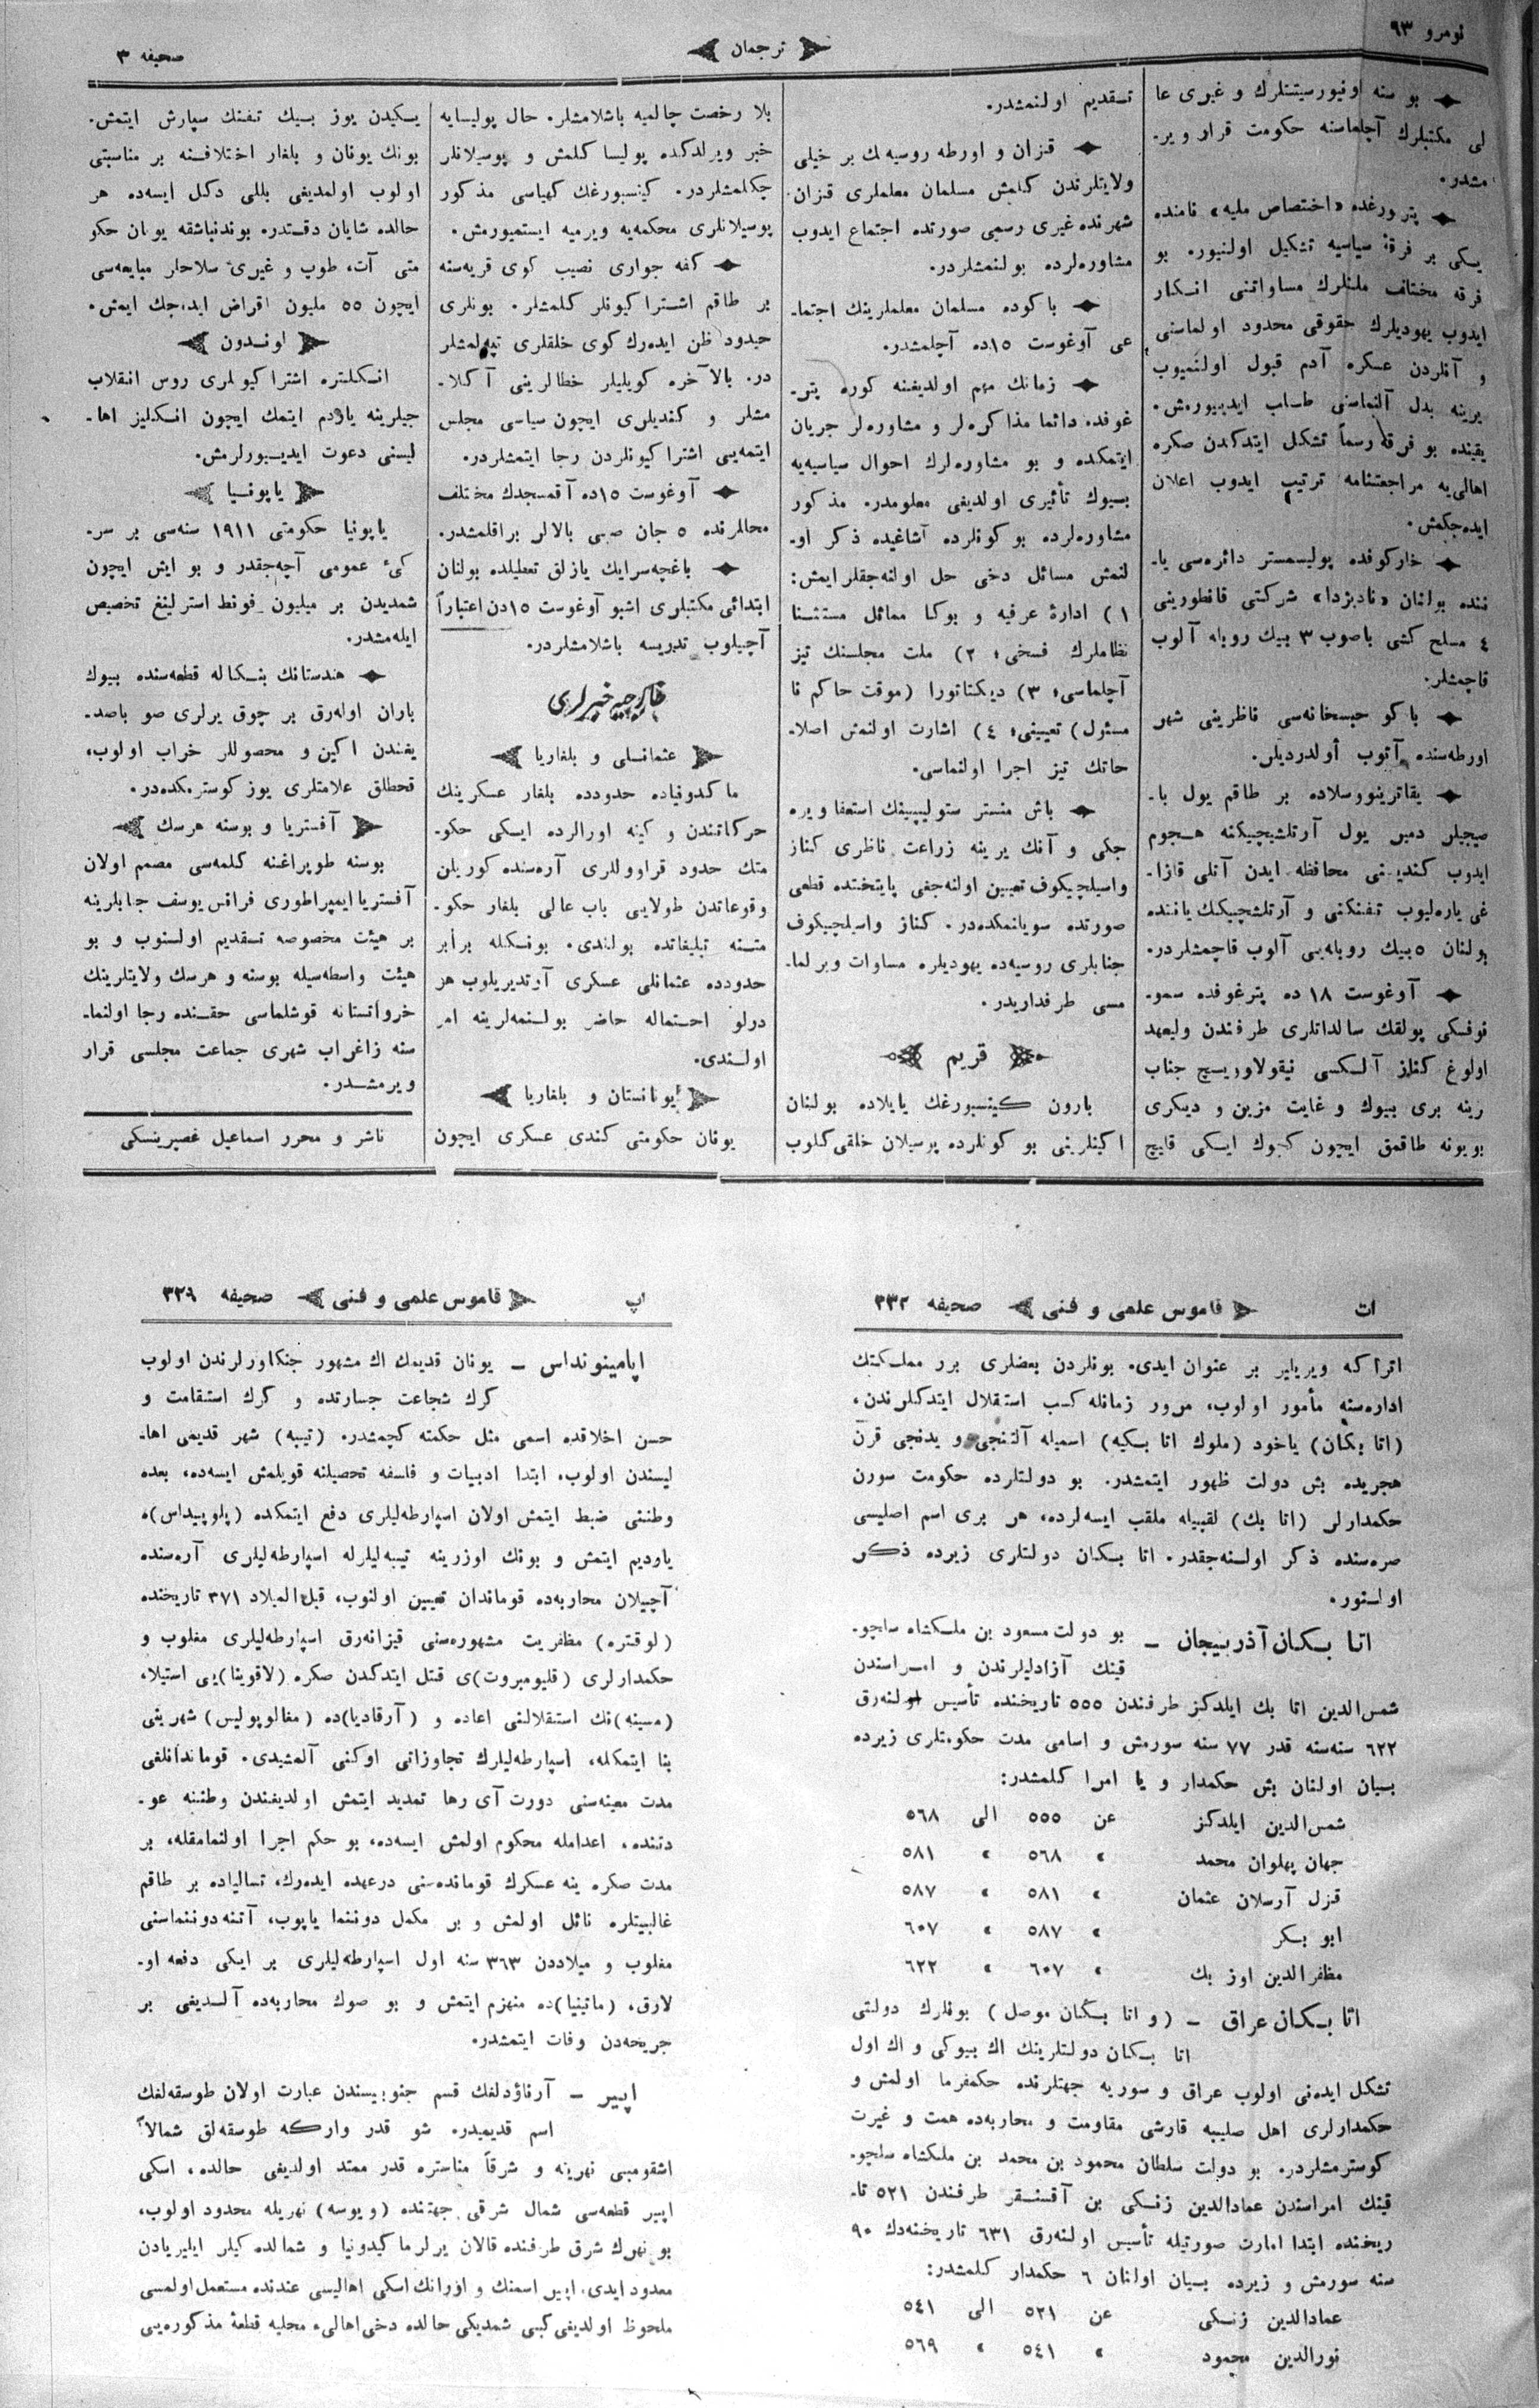 نومرو ٩٣
ترجمان
صحیفه ٣
بو سنه اونیورسیتتلرك و غیری عا
لی مكتبلرك آچلماسنه حكومت قرار ویر-
مشدر.
پترورغده «اختصاص ملیه» نامنده
یكی بر فرقهٔ سیاسیه تشكیل اولنیور. بو
فرقه مختلف ملتلرك مساواتنی انكار
ایدوب یهودیلرك حقوقی محدود اولماسنی
و آنلردن عسكره آدم قبول اولنمیوب
یرینه بدل آلنماسنی طلب ایدییورمش.
یقینده بو فرقه رسماً تشكل ایتدكدن صكره
اهالی‌یه مراجعتنامه ترتیب ایدوب اعلان
ایده‌جكمش.
خاركوفده پولیسمستر دائره‌سی یا-
ننده بولنان «نادیژدا» شركتی قانطورینی
٤ مسلح كشی باصوب ٣ بیك روبله آلوب
قاچمشلر.
باكو حبسخانه‌سی ناظرینی شهر
اورطه‌سنده آتوب أولدردیلر.
یقاترینوسلاده بر طاقم یول با-
صیجیلر دمیر یول آرتلشیچیكنه هجوم
ایدوب كندیسنی محافظه ایدن آتلی قازا-
غی یاره‌لیوب تفنكنی و آرتلشچیكك یاننده
بولنان ٥ بیك روبله‌یی آلوب قاچمشلردر.
آوغوست ١٨ ده پترغوفده سمو-
نوفسكی پولقك سالداتلری طرفندن ولیعهد
اولوغ كناز آلكسی نیقولاویچ جناب
رینه بری بیوك و غایت مزین و دیكری
بویونه طاقمق ایچون كچوك ایكی قلیچ
تقدیم اولنمشدر.
قزان و اورطه روسیه‌نك بر خیلی
ولایتلرندن كلمش مسلمان معلملری قزان
شهرنده غیری رسمی صورتده اجتماع ایدوب
مشاوره‌لرده بولنمشلردر.
باكوده مسلمان معلملرینك اجتما-
عی آوغوست ١٥ده آچلمشدر.
زمانك مهم اولدیغنه كوره پتر-
غوفده دائما مذاكره‌لر و مشاوره‌لر جریان
ایتمكده و بو مشاوره‌لرك احوال سیاسیه‌یه
بیوك تأثیری اولدیغی معلومدر. مذكور
مشاوره‌لرده بو كونلرده آشاغیده ذكر او-
لنمش مسائل دخی حل اولنه‌جقلر ایمش:
١) ادارهٔ عرفیه و بوكا مماثل مستثنا
نظاملرك فسخی؛ ٢) ملت مجلسنك تیز
آچلماسی؛ ٣) دیكتاتورا (موقت حاكم نا
مسئول) تعیینی؛ ٤) اشارت اولنمش اصلا-
حاتك تیز اجرا اولنماسی.
باش منستر ستولیپینك استعفا ویره
جكی و آنك یرینه زراعت ناظری كناز
واسیلچیكوف تعیین اولنه‌جغی پایتختده قطعی
صورتده سویلنمكده‌در. كناز واسیلچیكوف
جنابلری روسیه‌ده یهودیلره مساوات ویرلما-
مسی طرفداریدر.
قریم
بارون كینسبورغك یایلاده بولنان
اكینلرینی بو كونلرده پوسیلان خلقی كلوب
بلا رخصت چالمیه باشلامشلر. حال پولیسایه
خبر ویرلدكده پولیسا كلمش و پوسیلانلر
چكلمشلردر. كینسبورغك كهیاسی مذكور
پوسیلانلری محكمه‌یه ویرمیه ایستمیورمش.
كفه جواری نصیب كوی قریه‌سنه
بر طاقم اشتراكیونلر كلمشلر. بونلری
حیدود ظن ایده‌رك كوی خلقلری تپه‌لمشلر
در. بالآخره كویلیلر خطالرینی آكلا-
مشلر و كندیلری ایچون سیاسی مجلس
ایتمه‌یی اشتراكیونلردن رجا ایتمشلردر.
آوغوست ١٥ده آقمسجدك مختلف
محللرنده ٥ جان صبی بالالر براقلمشدر.
باغچه‌سرایك یازلق تعطیلده بولنان
ابتدائی مكتبلری اشبو آوغوست ١٥دن اعتباراً
آچیلوب تدریسه باشلامشلردر.
خارجیه خبرلری
عثمانلی و بلغاریا
ماكدونیاده حدودده بلغار عسكرینك
حركاتندن و كینه اورالرده ایكی حكو-
متك حدود قراووللری آره‌سنده كوریلن
وقوعاتدن طولایی باب عالی بلغار حكو-
متنه تبلیغاتده بولندی. بونكله برابر
حدودده عثمانلی عسكری آرتدیریلوب هر
درلو احتماله حاضر بولنمه‌لرینه امر
اولندی.
یونانستان و بلغاریا
یونان حكومتی كندی عسكری ایچون
یكیدن یوز بیك تفنك سپارش ایتمش.
بونك یونان و بلغار اختلافنه بر مناسبتی
اولوب اولمدیغی بللی دكل ایسه‌ده هر
حالده شایان دقتدر. بوندنباشقه یونان حكو
متی آت، طوپ و غیریٔ سلاحلر مبایعه‌سی
ایچون ٥٥ ملیون اقراض ایده‌جك ایمش.
لوندون
انكلتره اشتراكیونلری روس انقلاب
جیلرینه یاردم ایتمك ایچون انكلیز اها-
لیسنی دعوت ایدییورلرمش.
یاپونیا
یاپونیا حكومتی ١٩١١ سنه‌سی بر سر-
كیٔ عمومی آچه‌جقدر و بو ایش ایچون
شمدیدن بر میلیون فونط استرلینغ تخصیص
ایله‌مشدر.
هندستانك بنكاله قطعه‌سنده بیوك
باران اوله‌رق بر چوق یرلری صو باصد-
یغندن اكین و محصوللر خراب اولوب،
قحطلق علامتلری یوز كوسترمكده‌در.
آفستریا و بوسنه هرسك
بوسنه طوپراغنه كلمه‌سی مصمم اولان
آفستریا ایمپراطوری فرانس یوسف جنابلرینه
بر هیئت مخصوصه تقدیم اولنوب و بو
هیئت واسطه‌سیله بوسنه و هرسك ولایتلرینك
خرواتستانه قوشلماسی حقنده رجا اولنما-
سنه زاغراب شهری جماعت مجلسی قرار
ویرمشدر.
ناشر و محرر اسماعیل غصپرینسكی
ات
قاموس علمی و فنی
صحیفه ٣٣٢
اتراكه ویریلیر بر عنوان ایدی. بونلردن بعضلری برر مملكتك
اداره‌سنه مأمور اولوب، مرور زمانله كسب استقلال ایتدكلرندن،
(اتا بكان) یاخود (ملوك اتا بكیه) اسمیله آلتنجی و یدنجی قرن
هجریده بش دولت ظهور ایتمشدر. بو دولتلرده حكومت سورن
حكمدارلر (اتا بك) لقبیله ملقب ایسه‌لرده، هر بری اسم اصلیسی
صره‌سنده ذكر اولنه‌جقدر. اتا بكان دولتلری زیرده ذكر
اولنور.
اتا بكان آذربیجان - بو دولت مسعود بن ملكشاه سلجو-
قینك آزادلیلرندن و امراسندن
شمس‌الدین اتا بك ایلدكز طرفندن ٥٥٥ تاریخنده تأسیس اولنه‌رق
٦٢٢ سنه‌سنه قدر ٧٧ سنه سورمش و اسامی مدت حكومتلری زیرده
بیان اولنان بش حكمدار و یا امرا كلمشدر:
شمس‌الدین ایلدكز عن ٥٥٥ الی ٥٦٨
جهان پهلوان محمد » ٥٦٨ » ٥٨١
قزل آرسلان عثمان » ٥٨١ » ٥٨٧
ابو بكر » ٥٨٧ » ٦٠٧
مظفرالدین اوز بك » ٦٠٧ » ٦٢٢
اتا بكان عراق - (و اتا بكان موصل) بونلرك دولتی
اتا بكان دولتلرینك اك بیوكی و اك اول
تشكل ایده‌نی اولوب عراق و سوریه جهتلرنده حكمفرما اولمش و
حكمدارلری اهل صلیبه قارشی مقاومت و محاربه‌ده همت و غیرت
كوسترمشلردر. بو دولت سلطان محمود بن محمد بن ملكشاه سلجو-
قینك امراسندن عمادالدین زنكی بن آقسنقر طرفندن ٥٢١ تا-
ریخنده ابتدا امارت صورتیله تأسیس اولنه‌رق ٦٣١ تاریخنه‌دك ٩٠
سنه سورمش و زیرده بیان اولنان ٦ حكمدار كلمشدر:
عمادالدین زنكی عن ٥٢١ الی ٥٤١
نورالدین محمود » ٥٤١ » ٥٦٩
اپ
قاموس علمی و فنی
صحیفه ٣٢٩
اپامینونداس - یونان قدیمك اك مشهور جنكاورلرندن اولوب
كرك شجاعت جسارتده و كرك استقامت و
حسن اخلاقده اسمی مثل حكمنه كچمشدر. (تیبه) شهر قدیمی اها-
لیسندن اولوب، ابتدا ادبیات و فلسفه تحصیلنه قویلمش ایسه‌ده، بعده
وطننی ضبط ایتمش اولان اسپارطه‌لیلری دفع ایتمكده (پلوپیداس)ه
یاردیم ایتمش و بونك اوزرینه تیبه‌لیلرله اسپارطه‌لیلری آره‌سنده
آچیلان محاربه‌ده قوماندان تعیین اولنوب، قبل المیلاد ٣٧١ تاریخنده
(لوقتره) مظفریت مشهوره‌سنی قزانه‌رق اسپارطه‌لیلری مغلوب و
حكمدارلری (قلیومبروت)ی قتل ایتدكدن صكره (لاقونیا)یی استیلا،
(مسینه)نك استقلالنی اعاده و (آرقادیا)ده (مغالوپولیس) شهرینی
بنا ایتمكله، اسپارطه‌لیلرك تجاوزاتی اوكنی آلمشیدی. قوماندانلغی
مدت معینه‌سنی دورت آی رها تمدید ایتمش اولدیغندن وطننه عو-
دتنده، اعدامله محكوم اولمش ایسه‌ده، بو حكم اجرا اولنمامقله، بر
مدت صكره ینه عسكرك قومانده‌سنی درعهده ایده‌رك، تسالیاده بر طاقم
غالبیتلره نائل اولمش و بر مكمل دوننما یاپوب، آتنه دوننماسنی
مغلوب و میلاددن ٣٦٣ سنه اول اسپارطه‌لیلری بر ایكی دفعه او-
لارق، (مانتینیا)ده منهزم ایتمش و بو صوك محاربه‌ده آلدیغی بر
جریحه‌دن وفات ایتمشدر.
اپیر - آرناؤدلغك قسم جنوبیسندن عبارت اولان طوسقه‌لغك
اسم قدیمیدر. شو قدر واركه طوسقه‌لق شمالاً
اشقومبی نهرینه و شرقاً مناستره قدر ممتد اولدیغی حالده، اسكی
اپیر قطعه‌سی شمال شرقی جهتنده (ویوسه) نهریله محدود اولوب،
بو نهرك شرق طرفنده قالان یرلر ماكیدونیا و شمالده كیلر ایلیریادن
معدود ایدی. اپیر اسمنك و اورانك اسكی اهالیسی عندنده مستعمل اولمسی
ملحوظ اولدیغی كبی شمدیكی حالده دخی اهالیٔ محلیه قطعهٔ مذكوره‌یی